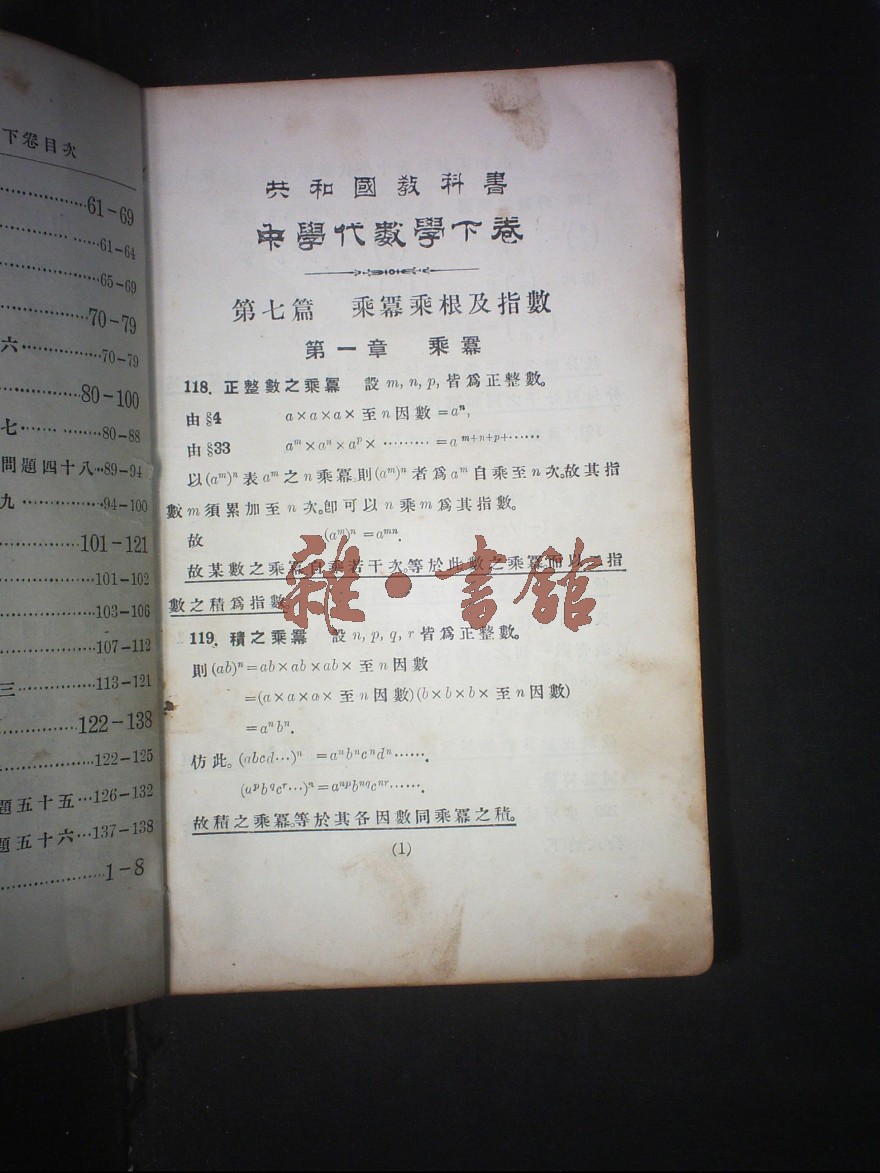 下卷目次
61-69
61-64
65-69
70-79
六 70-79
80-100
七 80-88
問題四十八 89-94
九 94-100
101-121
101-102
103-106
107-112
三 113-121
122-138
122-125
題五十五 126-132
題五十六 137-138
1-8
共和國教科書
中學代數學下卷
第七篇 乘冪乘根及指數
第一章 乘冪
118. 正整數之乘冪 設 m, n, p, 皆爲正整數。
由 §4 a×a×a× 至 n 因數 =aⁿ,
由 §33 aᵐ×aⁿ×aᵖ× ········· =aᵐ⁺ⁿ⁺ᵖ⁺······
以 (aᵐ)ⁿ 表 aᵐ 之 n 乘冪。則 (aᵐ)ⁿ 者爲 aᵐ 自乘至 n 次。故其指
數 m 須累加至 n 次。卽可以 n 乘 m 爲其指數。
故 (aᵐ)ⁿ=aᵐⁿ.
故某數之乘冪自乘若干次。等於此數之乘冪而以二指
數之積爲指數。
119. 積之乘冪 設 n, p, q, r 皆爲正整數。
則 (ab)ⁿ=ab×ab×ab× 至 n 因數
=(a×a×a× 至 n 因數)(b×b×b× 至 n 因數)
=aⁿbⁿ.
仿此。(abcd···)ⁿ =aⁿbⁿcⁿdⁿ······.
(aᵖb^qcʳ···)ⁿ=aⁿᵖb^{nq}cⁿʳ······.
故積之乘冪。等於其各因數同乘冪之積。
(1)
雜·書館